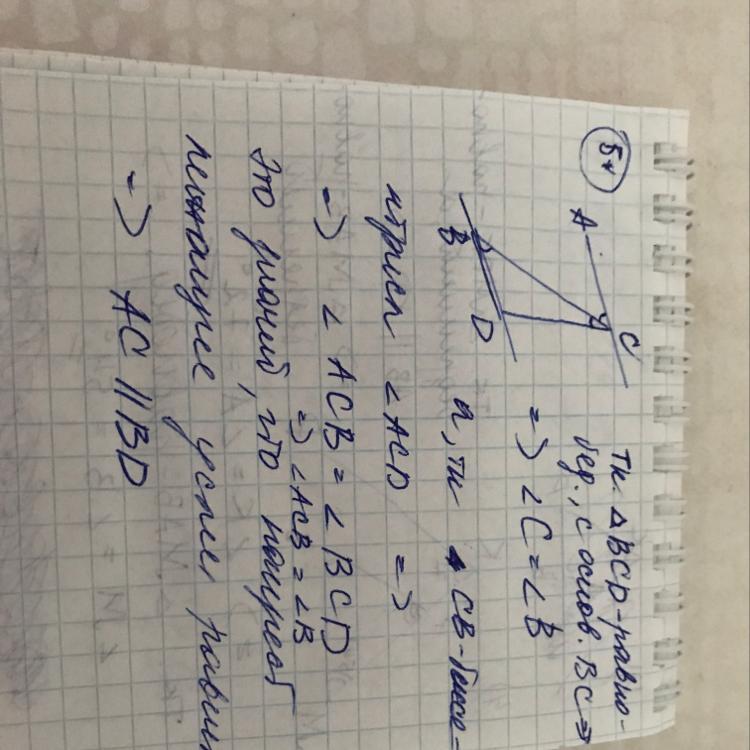 54
A
C
B
D
Тк. △BCD-равно-
бед., с основ. BC ⇒
⇒ ∠C = ∠B
тк CB-бисс-
ктриса ∠ACD ⇒
⇒ ∠ACB = ∠BCD
⇒ ∠ACB = ∠B
Это значит, что
лежащие углы
⇒ AC || BD